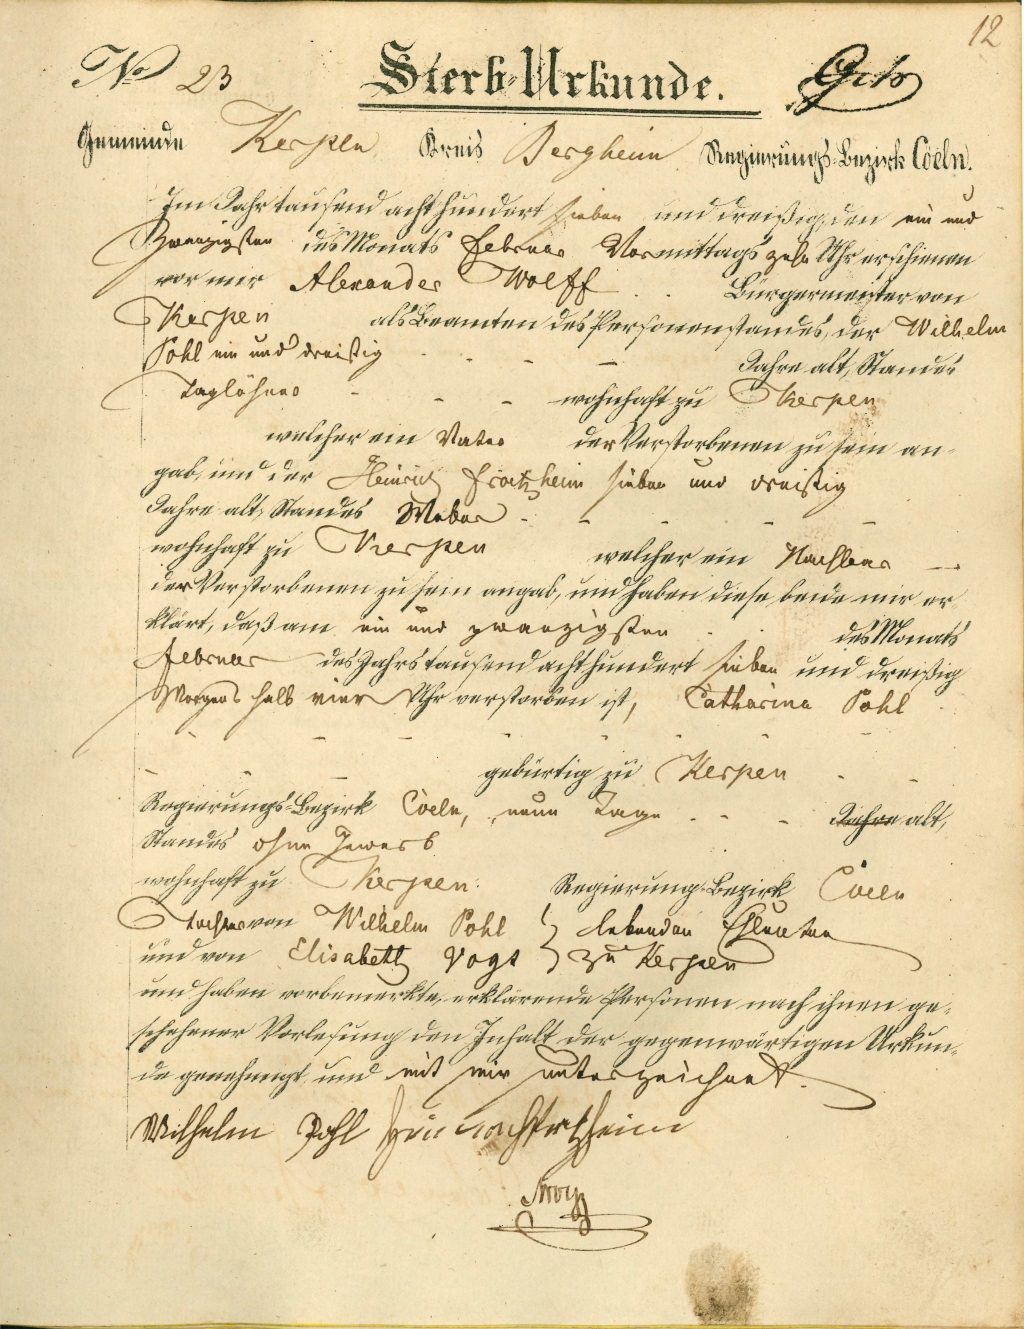 12
No 23 Sterb-Urkunde.
Gemeinde Kerpen Kreis Bergheim Regierungs-Bezirk Coeln.
Im Jahr tausend acht hundert sieben und dreißig, den ein und
zwanzigsten des Monats Februar Vormittags zehn Uhr erschienen
vor mir Alexander Wolff Bürgermeister von
Kerpen als Beamten des Personenstandes, der Wilhelm
Pohl ein und dreißig Jahre alt, Standes
Taglöhner wohnhaft zu Kerpen
welcher ein Vater der Verstorbenen zu sein an-
gab, und der Heinrich sieben und dreißig
Jahre alt, Standes Weber
wohnhaft zu Kerpen welcher ein Nachbar
der Verstorbenen zu sein angab, und haben diese beide mir er-
klärt, daß am ein und zwanzigsten des Monats
Februar des Jahrs tausend acht hundert sieben und dreißig
Morgens halb vier Uhr verstorben ist, Catharina Pohl
gebürtig zu Kerpen
Regierungs-Bezirk Coeln, neun Tage Jahre alt,
Standes ohne Gewerb
wohnhaft zu Kerpen Regierungs-Bezirk Coeln
Tochter von Wilhelm Pohl } lebenden Eheleuten
und von Elisabeth Vogt } zu Kerpen
und haben vorbemerkte, erklärende Personen nach ihnen ge-
schehener Vorlesung den Inhalt der gegenwärtigen Urkun-
de genehmigt und mit mir unterzeichnet.
Wilhelm Pohl